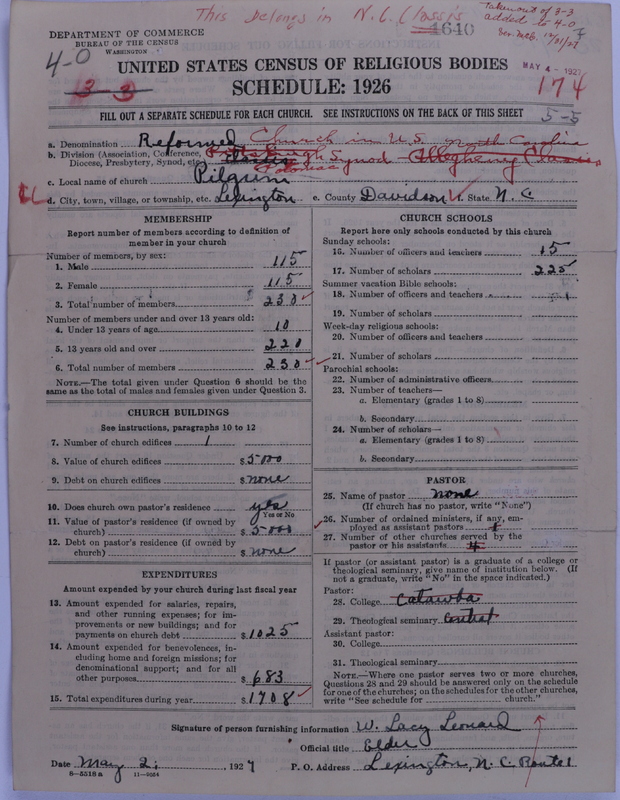 This belongs in N.C. Classis
Taken out of 8-3
added to 4-0
4640
DEPARTMENT OF COMMERCE
BUREAU OF THE CENSUS
WASHINGTON
MAY 4 - 1927
4-0
3-3
174
UNITED STATES CENSUS OF RELIGIOUS BODIES
SCHEDULE: 1926
FILL OUT A SEPARATE SCHEDULE FOR EACH CHURCH. SEE INSTRUCTIONS ON THE BACK OF THIS SHEET
5-5
a. Denomination Reformed Church in U.S. North Carolina
b. Division (Association, Conference, Pittsburgh Synod - Allegheny Classis
Diocese, Presbytery, Synod, etc.) Classis Potomac
c. Local name of church Pilgrim
d. City, town, village, or township, etc. Lexington e. County Davidson f. State N. C.
MEMBERSHIP
Report number of members according to definition of
member in your church
Number of members, by sex:
1. Male 115
2. Female 115
3. Total number of members 230
Number of members under and over 13 years old:
4. Under 13 years of age 10
5. 13 years old and over 220
6. Total number of members 230
NOTE.—The total given under Question 6 should be the
same as the total of males and females given under Question 3.
CHURCH BUILDINGS
See instructions, paragraphs 10 to 12
7. Number of church edifices 1
8. Value of church edifices $5000
9. Debt on church edifices $none
10. Does church own pastor's residence yes
Yes or No
11. Value of pastor's residence (if owned by
church) $5000
12. Debt on pastor's residence (if owned by
church) $none
EXPENDITURES
Amount expended by your church during last fiscal year
13. Amount expended for salaries, repairs,
and other running expenses; for im-
provements or new buildings; and for
payments on church debt $1025
14. Amount expended for benevolences, in-
cluding home and foreign missions; for
denominational support; and for all
other purposes $683
15. Total expenditures during year $1708
CHURCH SCHOOLS
Report here only schools conducted by this church
Sunday schools:
16. Number of officers and teachers 15
17. Number of scholars 225
Summer vacation Bible schools:
18. Number of officers and teachers
19. Number of scholars
Week-day religious schools:
20. Number of officers and teachers
21. Number of scholars
Parochial schools:
22. Number of administrative officers
23. Number of teachers—
a. Elementary (grades 1 to 8)
b. Secondary
24. Number of scholars—
a. Elementary (grades 1 to 8)
b. Secondary
PASTOR
25. Name of pastor none
(If church has no pastor, write "None")
26. Number of ordained ministers, if any, em-
ployed as assistant pastors
27. Number of other churches served by the
pastor or his assistants 4
If pastor (or assistant pastor) is a graduate of a college or
theological seminary, give name of institution below. (If
not a graduate, write "No" in the space indicated.)
Pastor:
28. College Catawba
29. Theological seminary Central
Assistant pastor:
30. College
31. Theological seminary
NOTE.—Where one pastor serves two or more churches,
Questions 28 and 29 should be answered only on the schedule
for one of the churches; on the schedules for the other churches,
write "See schedule for church."
Signature of person furnishing information W. Lacy Leonard
Official title Elder
Date May 2, 1927 P. O. Address Lexington, N. C. Route 1
8-5518 a 11-9064